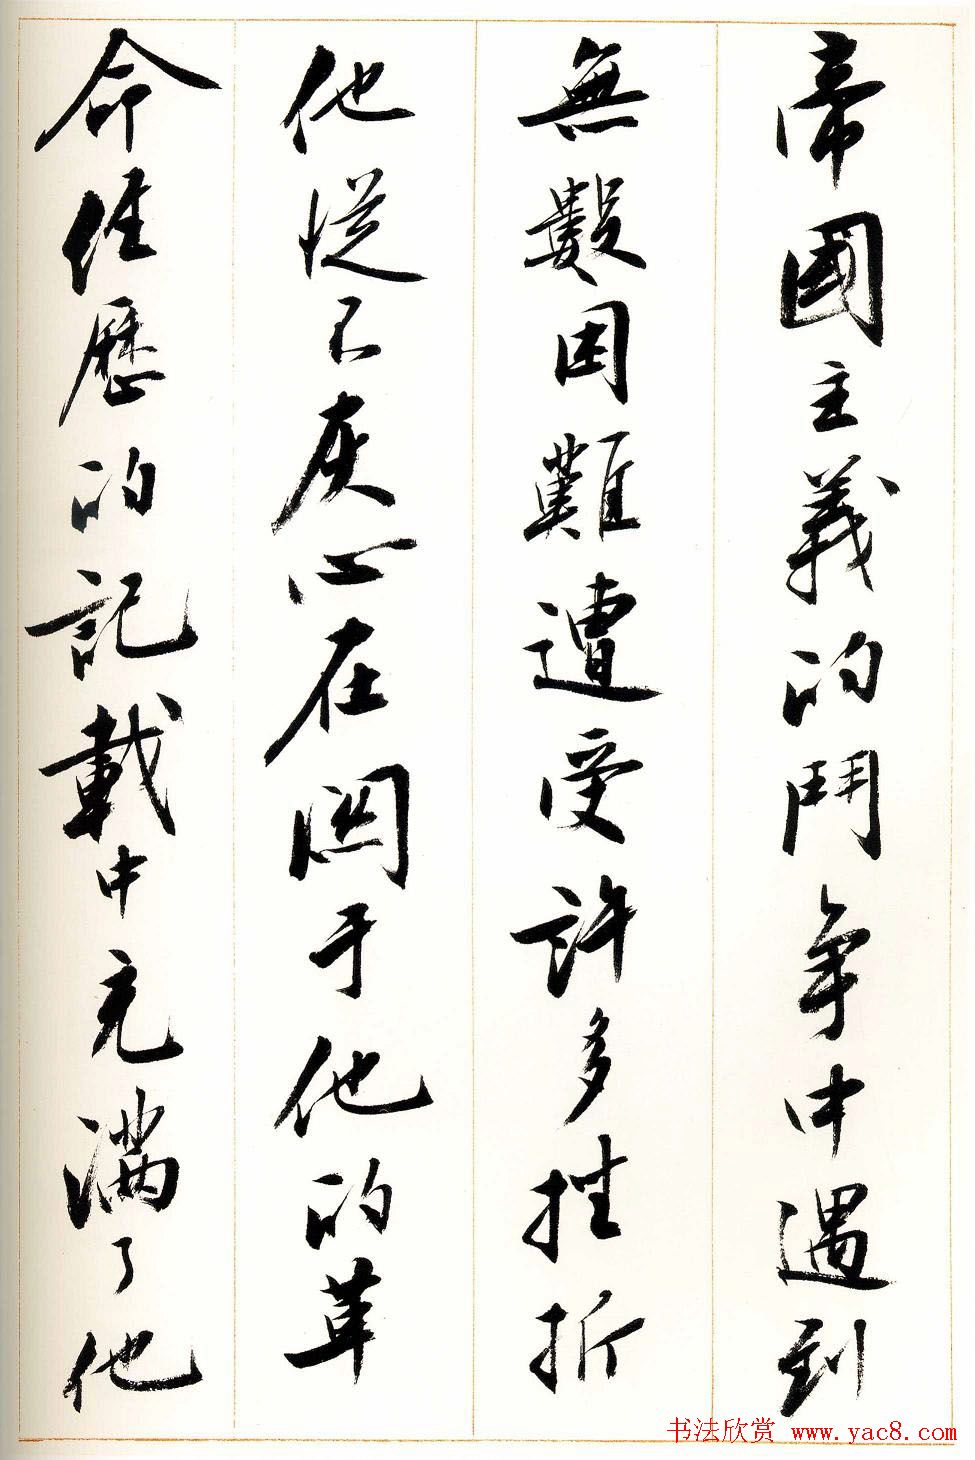 帝國主義的鬥争中遇到
無數困難遭受許多挫折
他從不灰心在関于他的革
命經歷的記載中充滿了他
书法欣赏 www.yac8.com